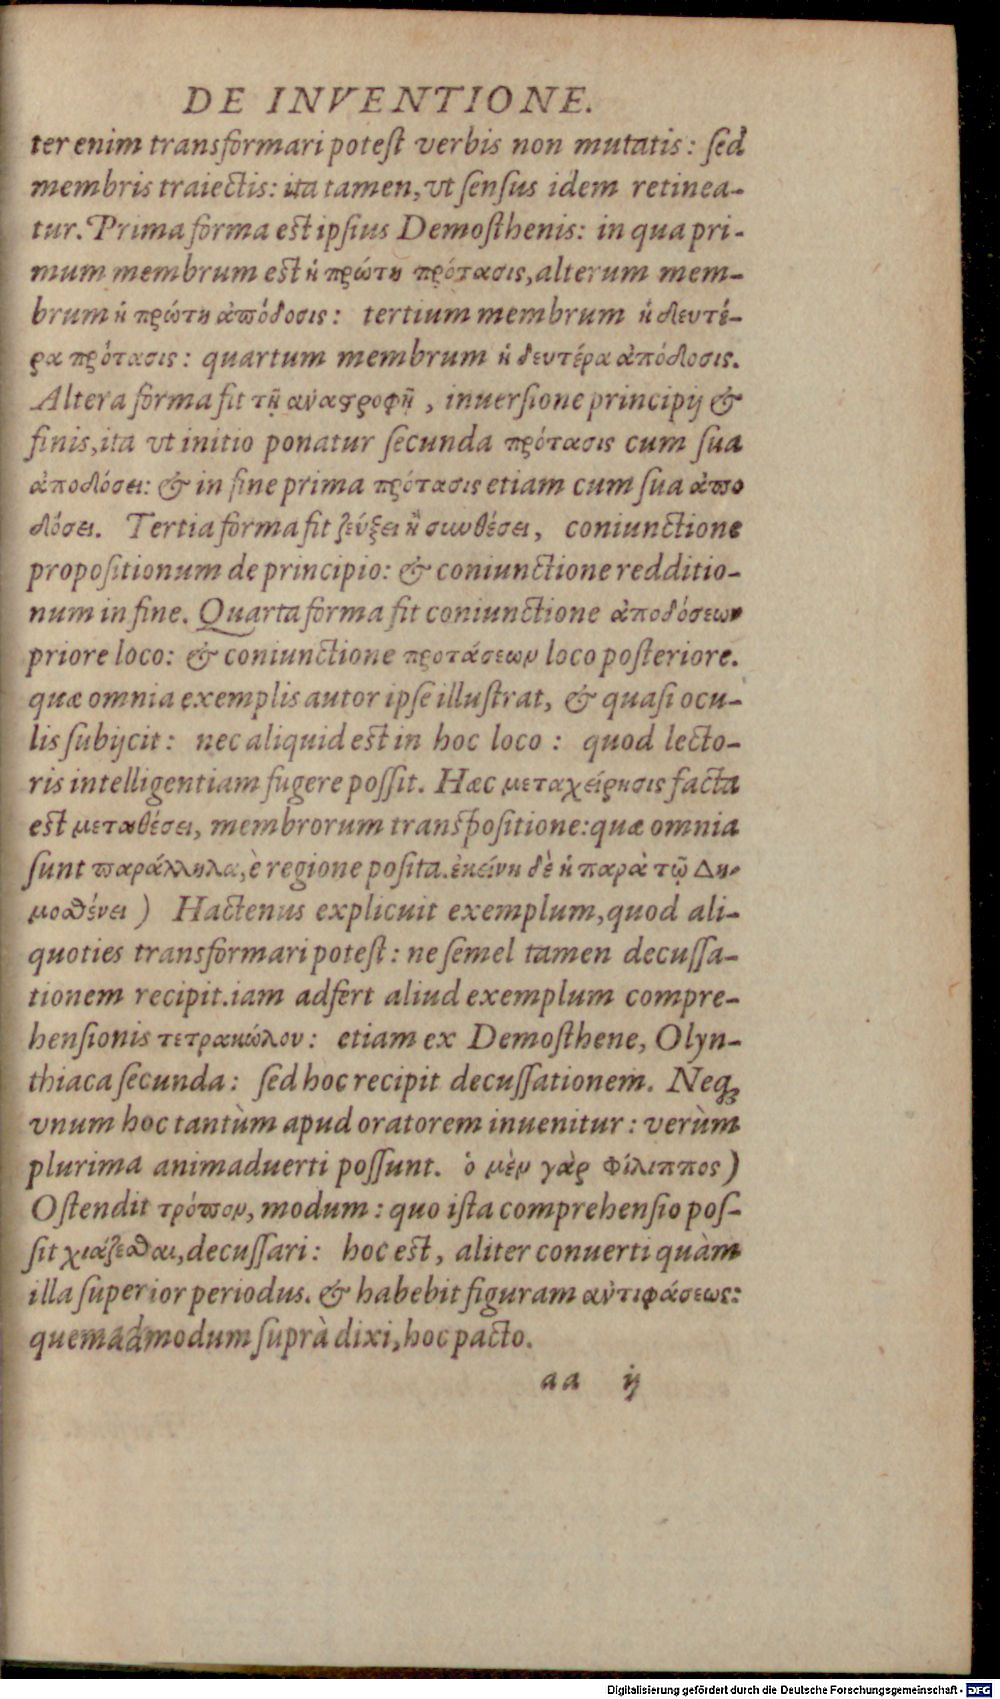 DE INVENTIONE.
ter enim transformari potest verbis non mutatis: sed
membris traiectis: ita tamen, vt sensus idem retinea-
tur. Prima forma est ipsius Demosthenis: in qua pri-
mum membrum est ἡ πρώτη πρότασις, alterum mem-
brum ἡ πρώτη ἀπόδοσις: tertium membrum ἡ δευτέ-
ρα πρότασις: quartum membrum ἡ δευτέρα ἀπόδοσις.
Altera forma fit τῇ ἀναστροφῇ, inuersione principij &
finis, ita vt initio ponatur secunda πρότασις cum sua
ἀποδόσει: & in fine prima πρότασις etiam cum sua ἀπο
δόσει. Tertia forma fit ζεύξει ἢ συνθέσει, coniunctione
propositionum de principio: & coniunctione redditio-
num in fine. Quarta forma fit coniunctione ἀποδόσεων
priore loco: & coniunctione προτάσεων loco posteriore.
quæ omnia exemplis autor ipse illustrat, & quasi ocu-
lis subijcit: nec aliquid est in hoc loco: quod lecto-
ris intelligentiam fugere possit. Hæc μεταχείρησις facta
est μεταθέσει, membrorum transpositione: quæ omnia
sunt παράλληλα, è regione posita. ἐκείνη δὲ ἡ παρὰ τῷ Δη-
μοσθένει) Hactenus explicuit exemplum, quod ali-
quoties transformari potest: ne semel tamen decussa-
tionem recipit. iam adfert aliud exemplum compre-
hensionis τετρακώλου: etiam ex Demosthene, Olyn-
thiaca secunda: sed hoc recipit decussationem. Neq;
vnum hoc tantùm apud oratorem inuenitur: verùm
plurima animaduerti possunt. ὁ μὲν γὰρ Φίλιππος)
Ostendit τρόπον, modum: quo ista comprehensio pos-
sit χιάζεσθαι, decussari: hoc est, aliter conuerti quàm
illa superior periodus. & habebit figuram ἀντιφάσεως:
quemadmodum suprà dixi, hoc pacto.
aa ij
Digitalisierung gefördert durch die Deutsche Forschungsgemeinschaft - DFG